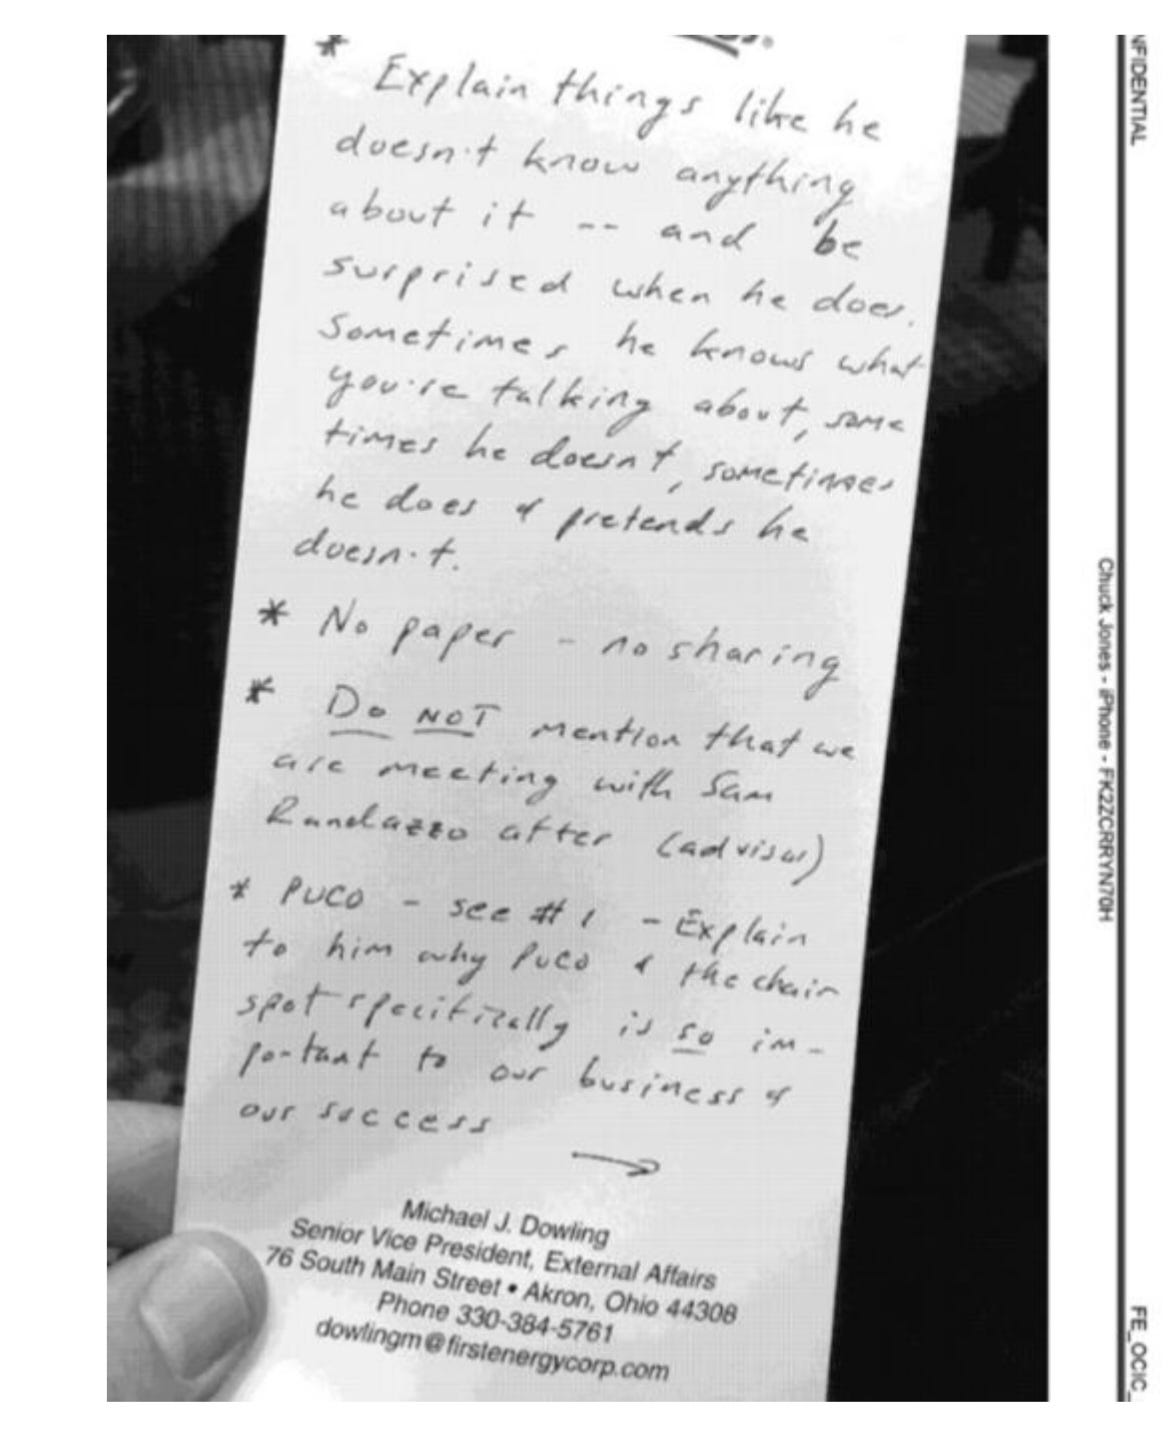 * Explain things like he
doesn't know anything
about it -- and be
surprised when he does.
Sometimes he knows what
you're talking about, some
times he doesn't, sometimes
he does & pretends he
doesn't.
* No paper - no sharing
* Do NOT mention that we
are meeting with Sam
Randazzo after (advisor)
* PUCO - see #1 - Explain
to him why PUCO & the chair
spot specifically is so im-
portant to our business &
our success
→
Michael J. Dowling
Senior Vice President, External Affairs
76 South Main Street • Akron, Ohio 44308
Phone 330-384-5761
dowlingm@firstenergycorp.com
NFIDENTIAL
Chuck Jones - iPhone - FK2ZCRRYN70H
FE_OCIC_